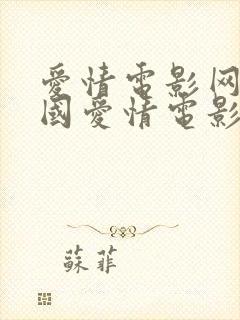 愛情電影网
國愛情電影
蘇菲